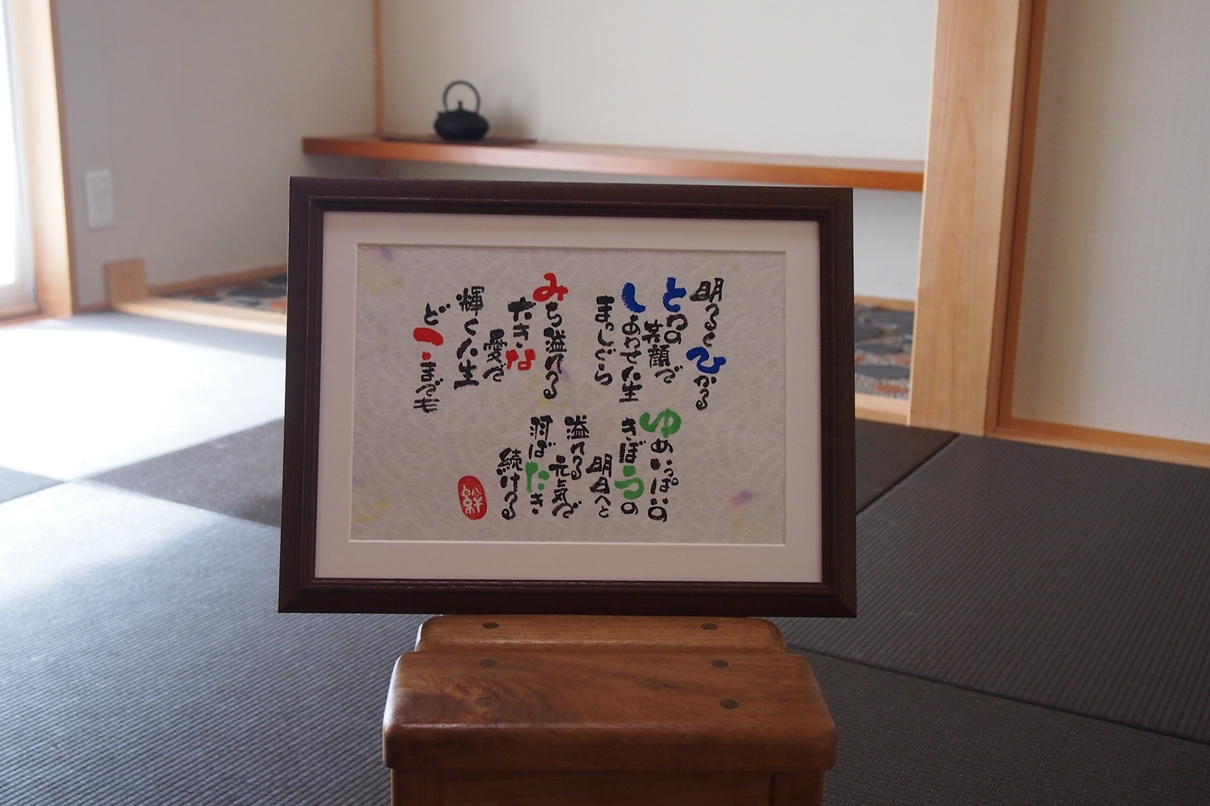 明るくひかる
とわの
笑顔で
しあわせ人生
まっしぐら
みち溢れる
大きな
愛で
輝く人生
どこまでも
ゆめいっぱいの
きぼうの
明日へと
溢れる
元気で
羽ばたき
続ける
絆